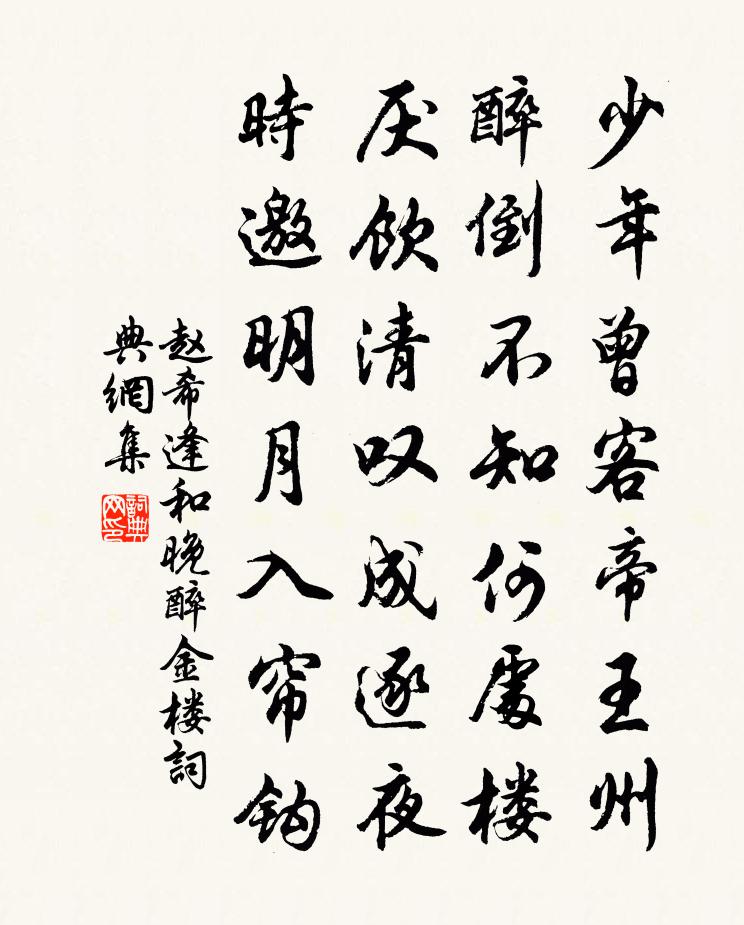 少年曾客帝王州
醉倒不知何處楼
厌饮清叹成逐夜
時邀明月入帘钩
赵希逢和晚醉金楼詞
典網集
詞典网印